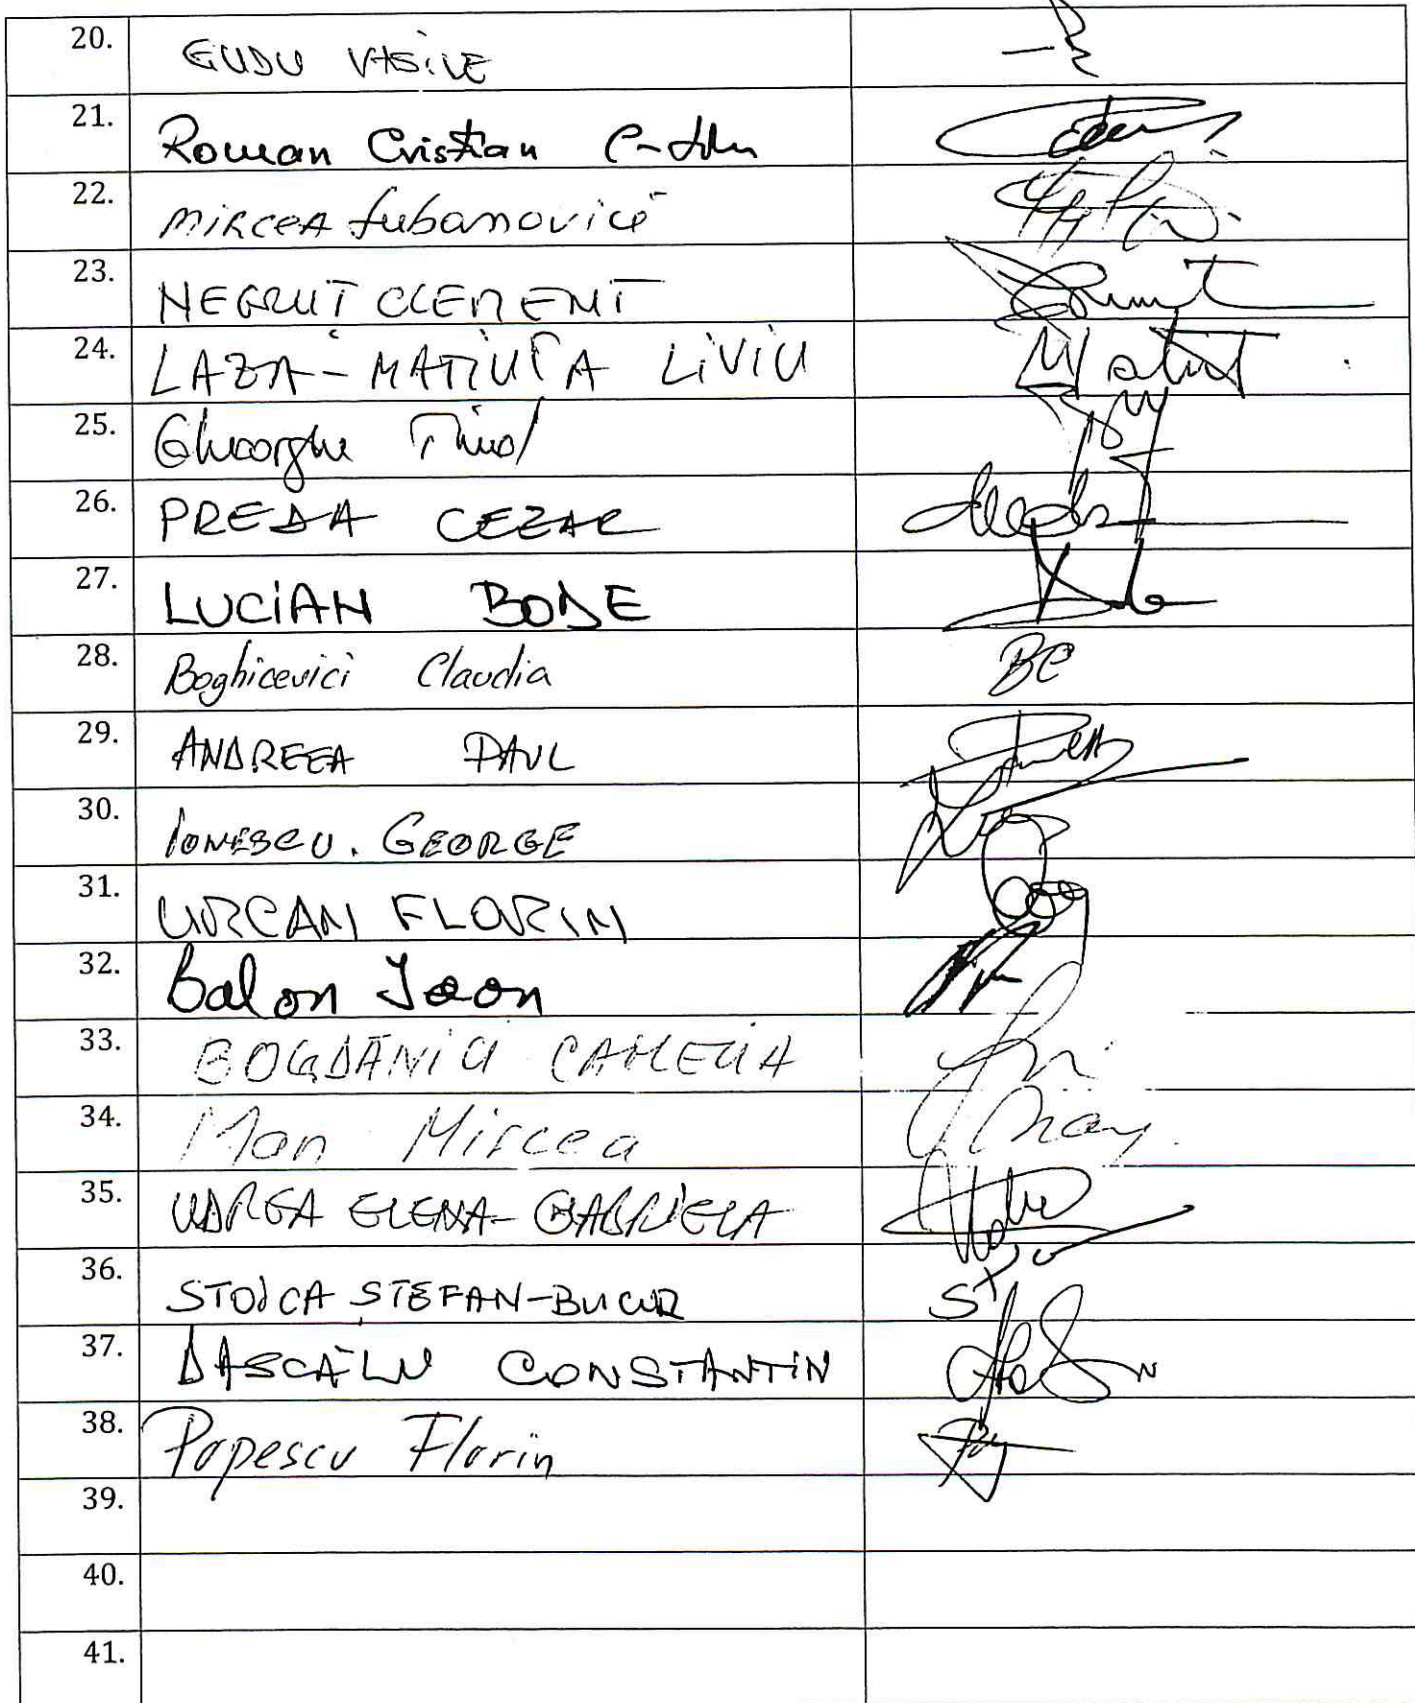 20. GUDU VASILE
21. Roman Cristian C-tin
22. MIRCEA Lubanovici
23. NEGRUȚ CLEMENT
24. LAZA-MATIUȚA LIVIU
25. Gheorghe
26. PREDA CEZAR
27. LUCIAN BODE
28. Boghicevici Claudia BC
29. ANDREEA PAUL
30. IONESCU. GEORGE
31. URCAN FLORIN
32. Balan Ioan
33. BOGDĂNICI CAMELIA
34. Man Mircea
35. UDREA ELENA-GABRIELA
36. STOICA ȘTEFAN-BUCUR
37. DASCĂLU CONSTANTIN
38. Popescu Florin
39.
40.
41.